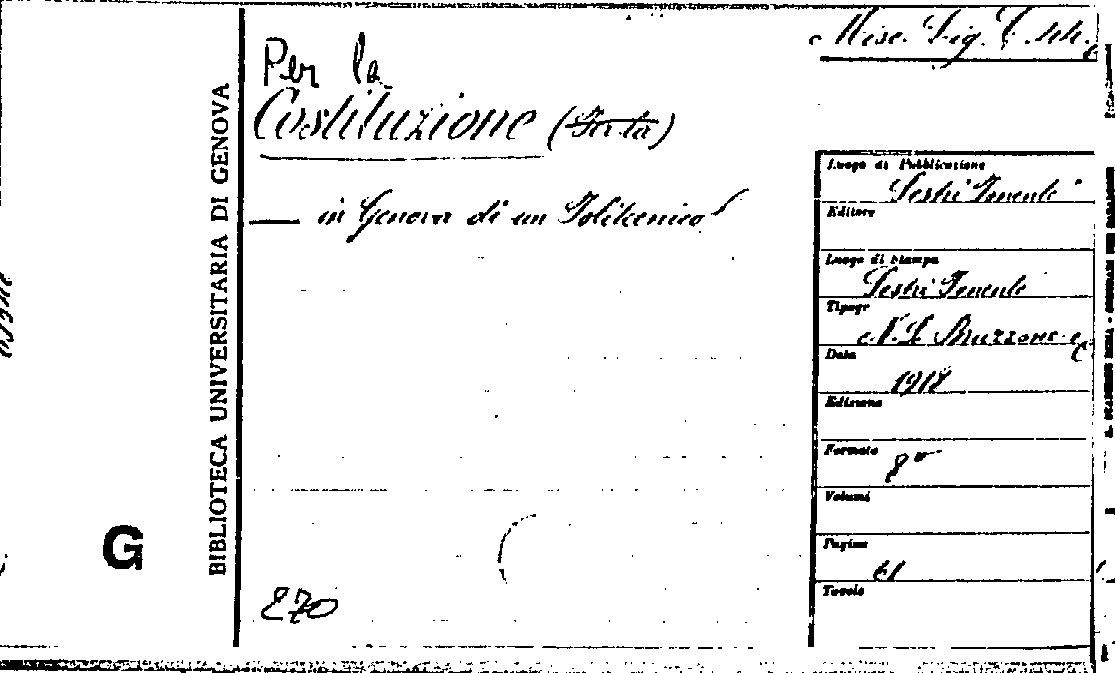 Misc. Lig. C.
Per la
Costituzione (Per la)
— in Genova di un Politecnico
BIBLIOTECA UNIVERSITARIA DI GENOVA
G
270
Luogo di Pubblicazione
Sestri Ponente
Editore
Luogo di Stampa
Sestri Ponente
Tipogr
Bruzzone e
Data
1918
Edizione
Formato
8°
Volumi
Pagine
61
Tavole